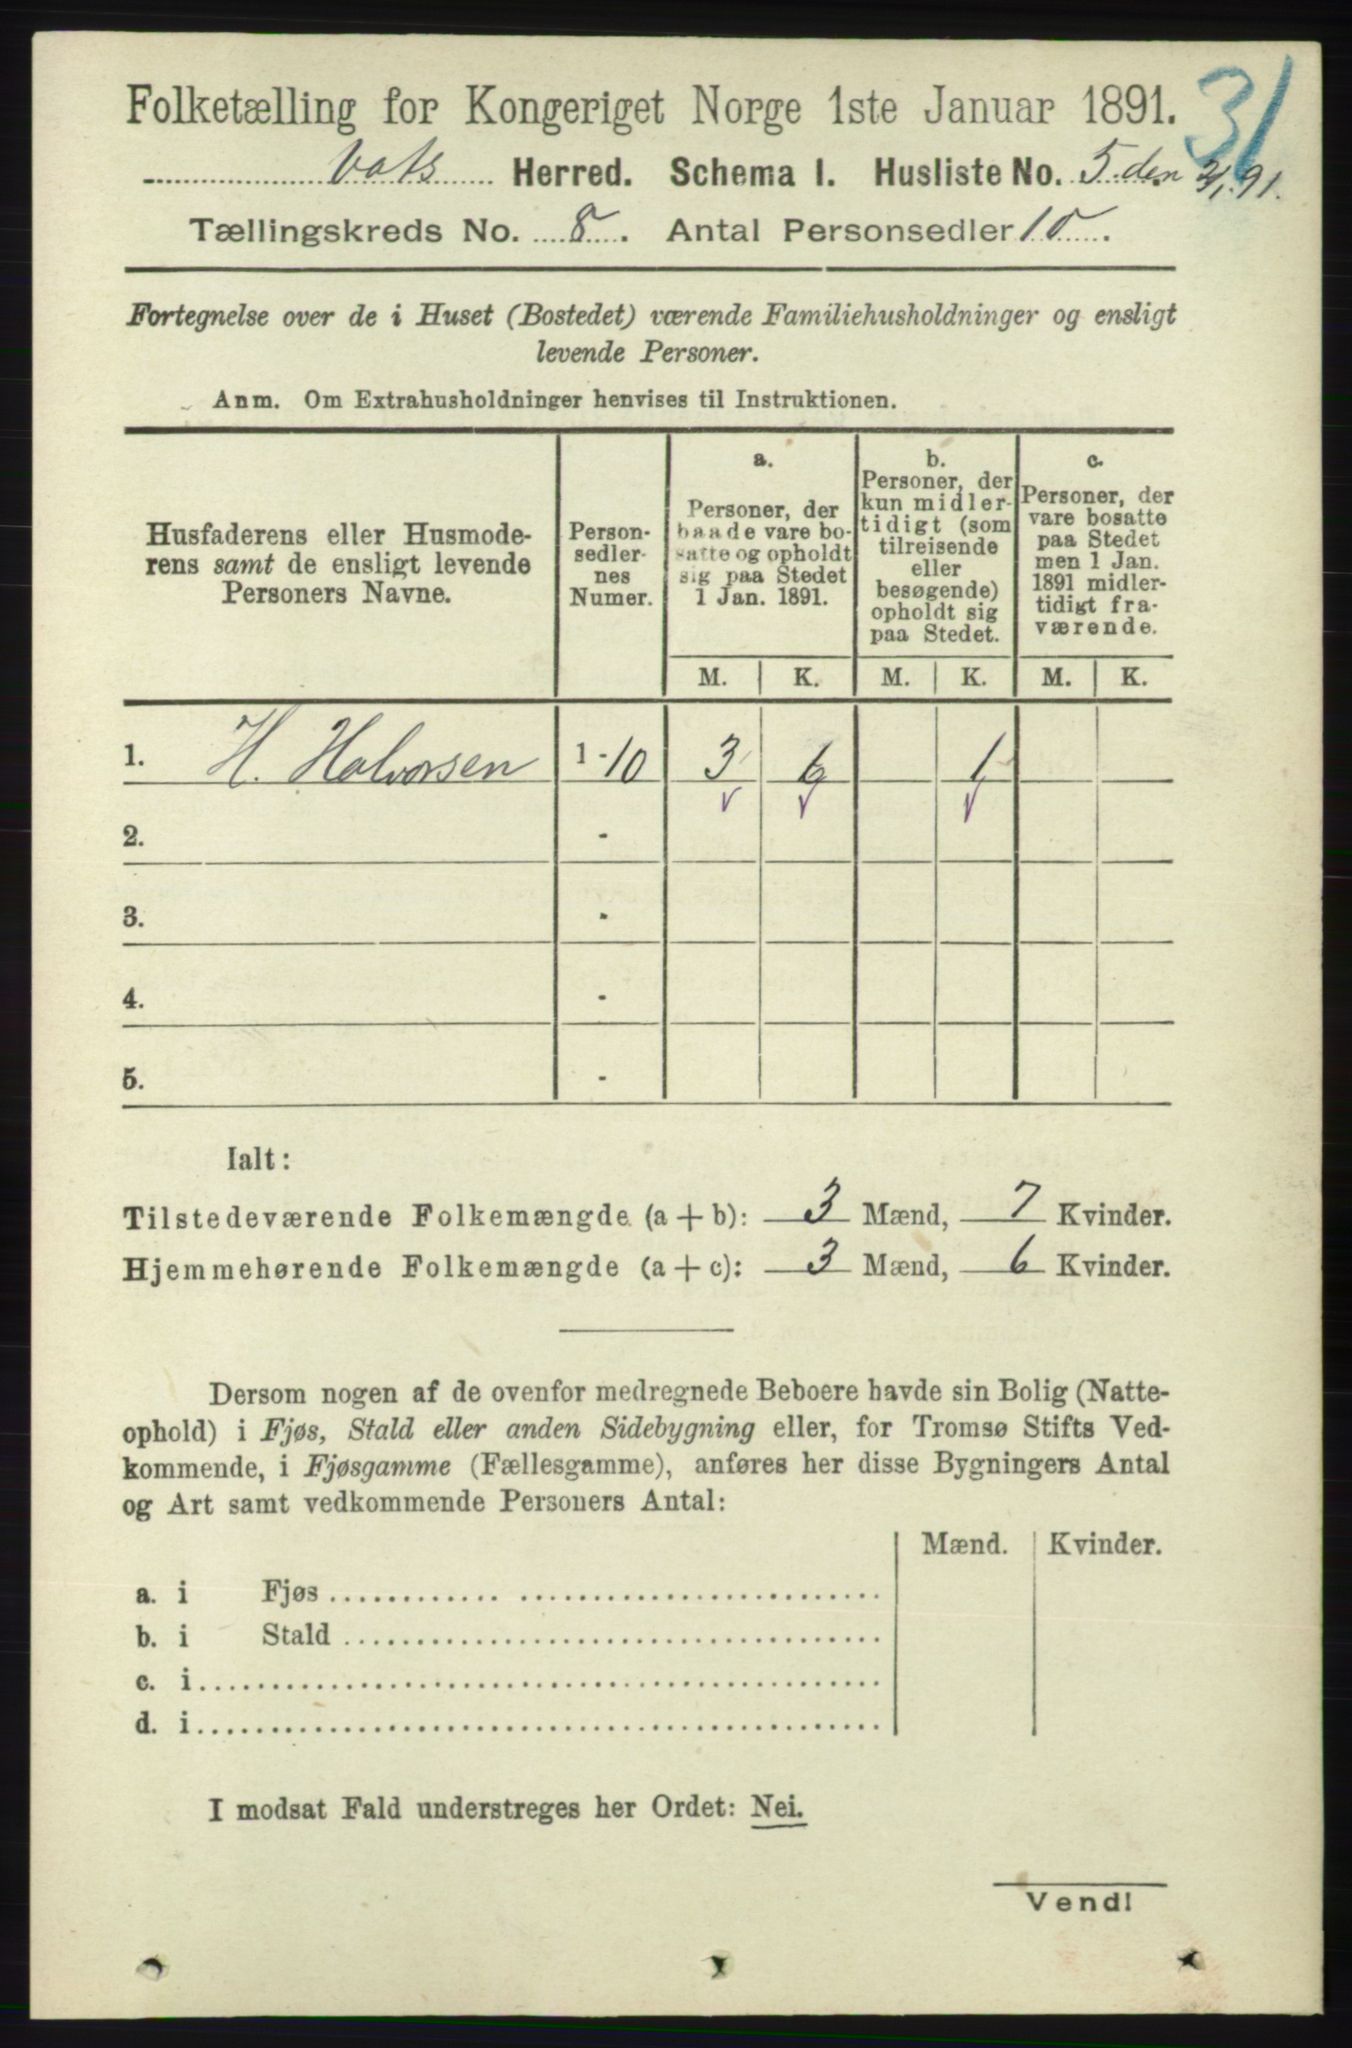 Folketælling for Kongeriget Norge 1ste Januar 1891.
31
Vats Herred. Schema I. Husliste No. 5 den 2/1.91.
Tællingskreds No. 8. Antal Personsedler 10.
Fortegnelse over de i Huset (Bostedet) værende Familiehusholdninger og ensligt
levende Personer.
Anm. Om Extrahusholdninger henvises til Instruktionen.
Husfaderens eller Husmode-
rens samt de ensligt levende
Personers Navne.
Person-
sedler-
nes
Numer.
a.
Personer, der
baade vare bo-
satte og opholdt
sig paa Stedet
1 Jan. 1891.
b.
Personer, der
kun midler-
tidigt (som
tilreisende
eller
besøgende)
opholdt sig
paa Stedet.
c.
Personer, der
vare bosatte
paa Stedet
men 1 Jan.
1891 midler-
tidigt fra-
værende.
M. K. M. K. M. K.
1. H. Halvorsen 1-10 3 6 1
2. -
3. -
4. -
5. -
Ialt:
Tilstedeværende Folkemængde (a + b): 3 Mænd, 7 Kvinder.
Hjemmehørende Folkemængde (a + c): 3 Mænd, 6 Kvinder.
Dersom nogen af de ovenfor medregnede Beboere havde sin Bolig (Natte-
ophold) i Fjøs, Stald eller anden Sidebygning eller, for Tromsø Stifts Ved-
kommende, i Fjøsgamme (Fællesgamme), anføres her disse Bygningers Antal
og Art samt vedkommende Personers Antal:
Mænd. Kvinder.
a. i Fjøs
b. i Stald
c. i
d. i
I modsat Fald understreges her Ordet: Nei.
Vend!